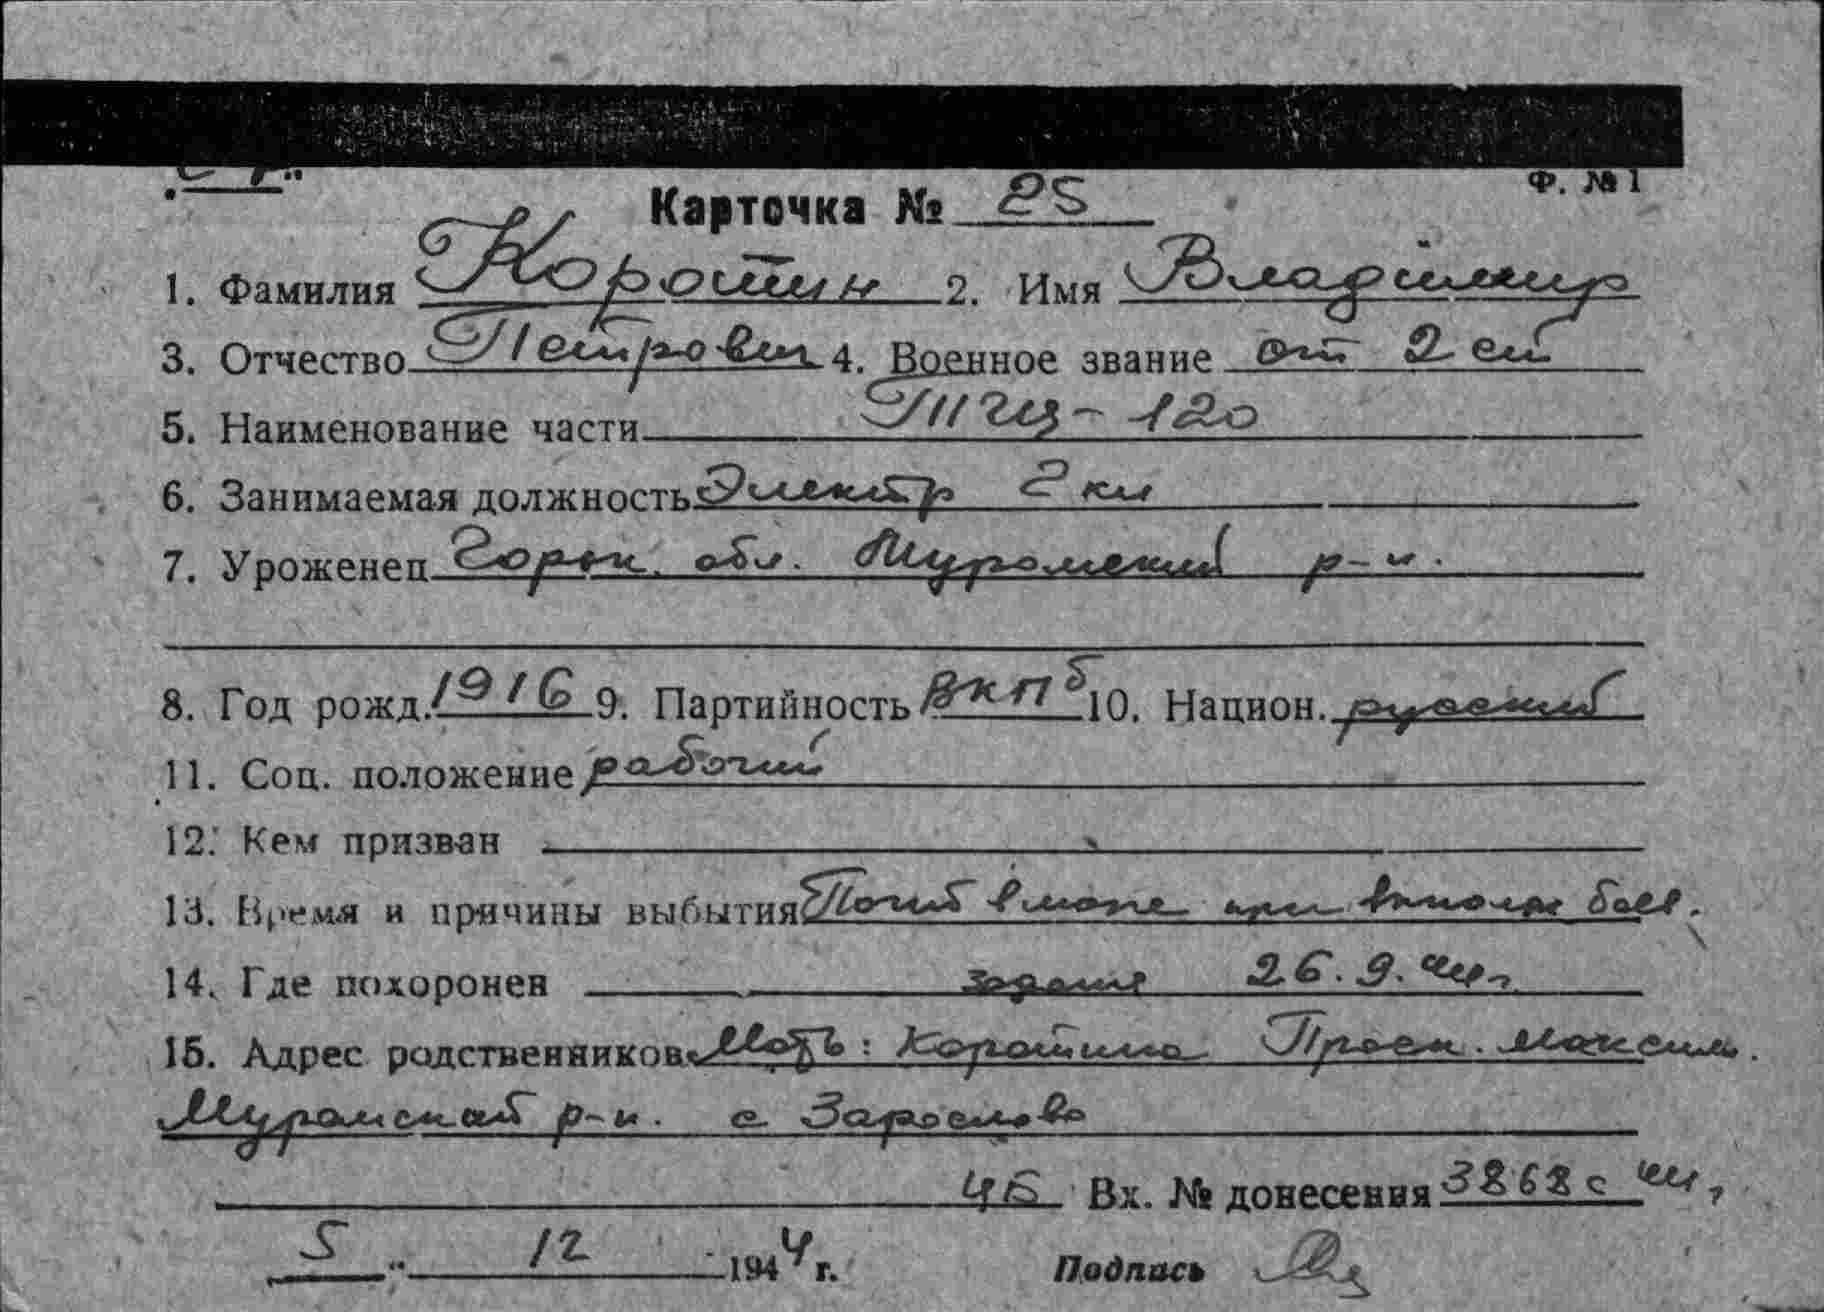 Ф. № 1
Карточка № 25
1. Фамилия Коротин 2. Имя Владимир
3. Отчество Петрович 4. Военное звание ст 2 ст
5. Наименование части ТЩ-120
6. Занимаемая должность Электр 2 кл
7. Уроженец Горьк. обл. Муромский р-н.
8. Год рожд. 1916 9. Партийность ВКПб 10. Национ. русский
11. Соц. положение рабочий
12. Кем призван
13. Время и причины выбытия Погиб в море при выполн боев.
14. Где похоронен задания 26.9.44г.
15. Адрес родственников Мать: Коротина Праск. Максим.
Муромский р-н. с
ЧБ Вх. № донесения 3868с 44г
5 " 12 1944 г. Подпись